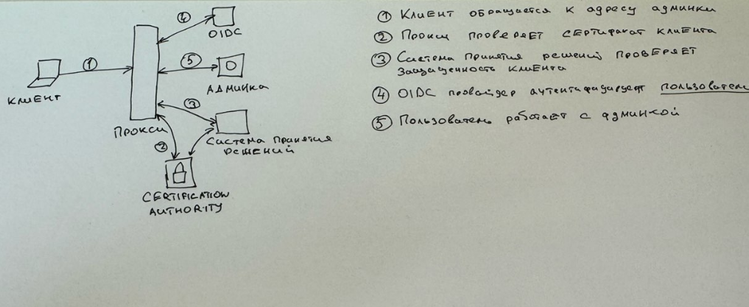 ④
OIDC
①
⑤
Админка
Клиент
③
Прокси
Система принятия
решений
②
CERTIFICATION
AUTHORITY
① Клиент обращается к адресу админки
② Прокси проверяет сертификат клиента
③ Система принятия решений проверяет
защищенность клиента
④ OIDC провайдер аутентифицирует пользователя
⑤ Пользователь работает с админкой